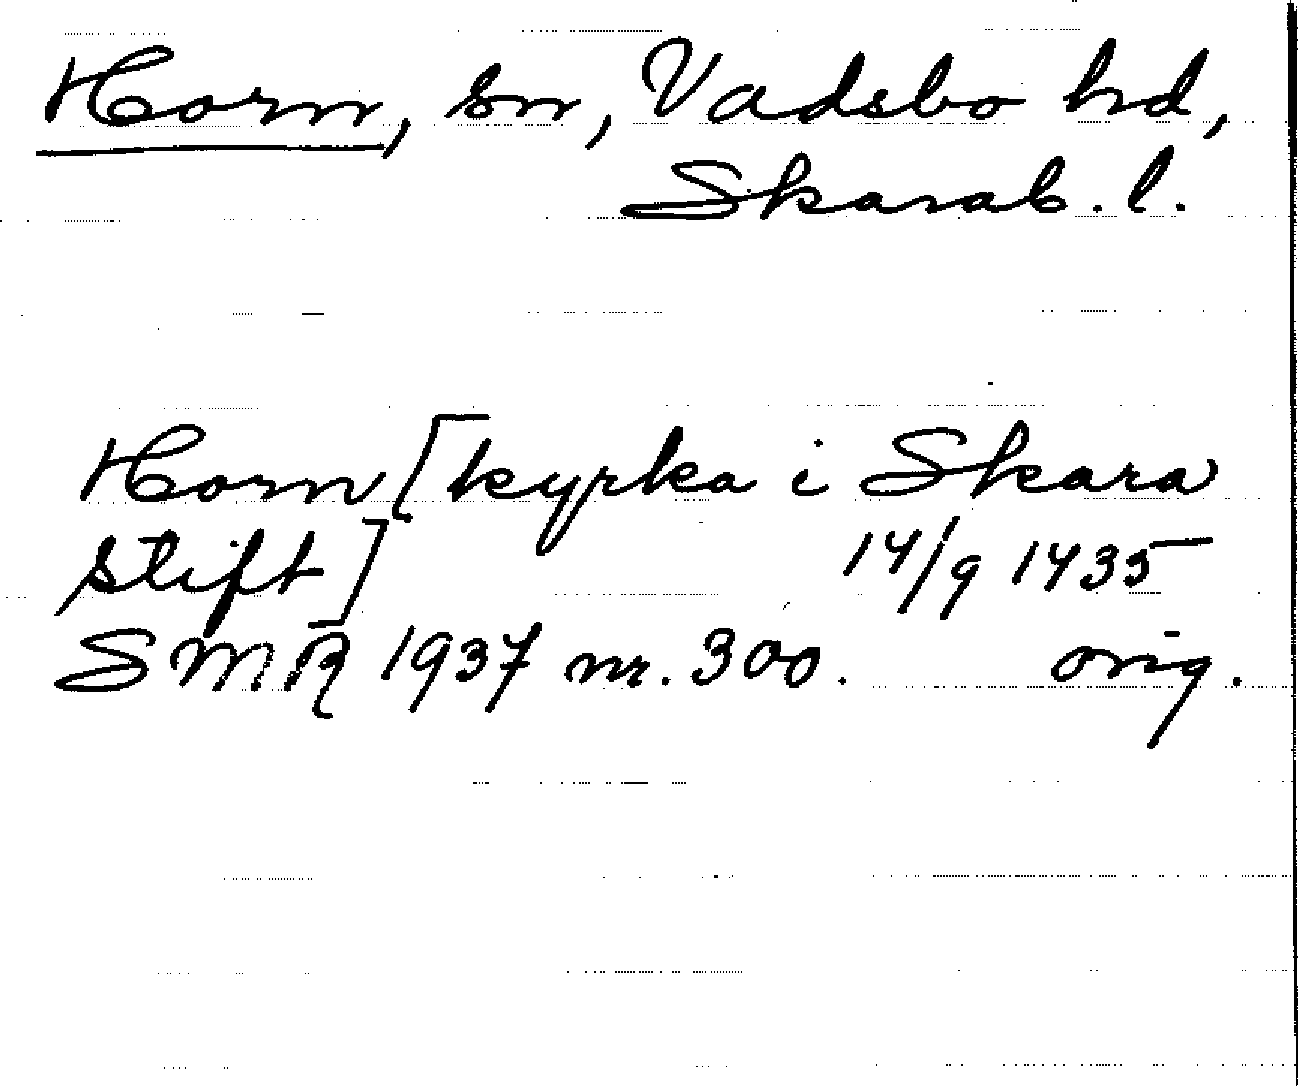 Horn, sn, Vadsbo hd,
Skarab. l.
Horn [kyrka i Skara
stift] 14/9 1435
SMR 1937 nr. 300. orig.